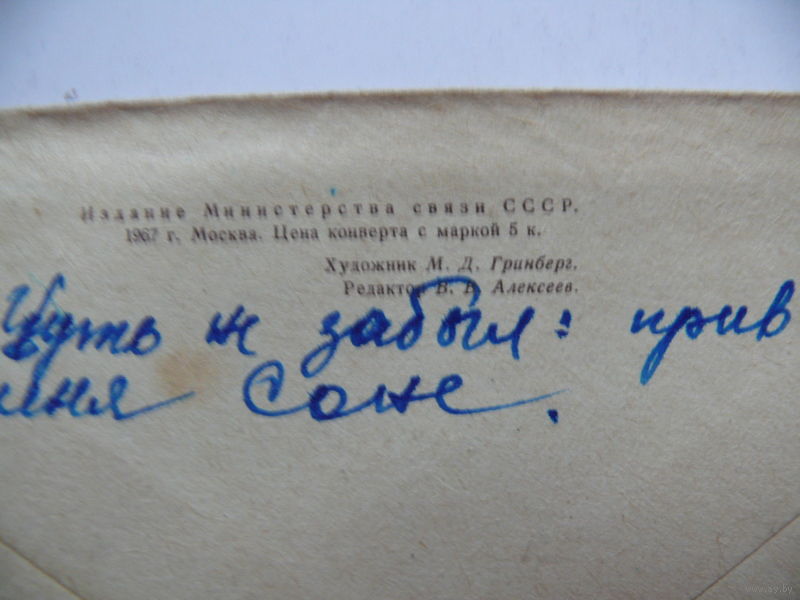 Издание Министерства связи СССР.
1967 г. Москва. Цена конверта с маркой 5 к.
Художник М. Д. Гринберг.
Редактор В. В. Алексеев.
Чуть не забыл: прив
меня Соне.
www.ay.by